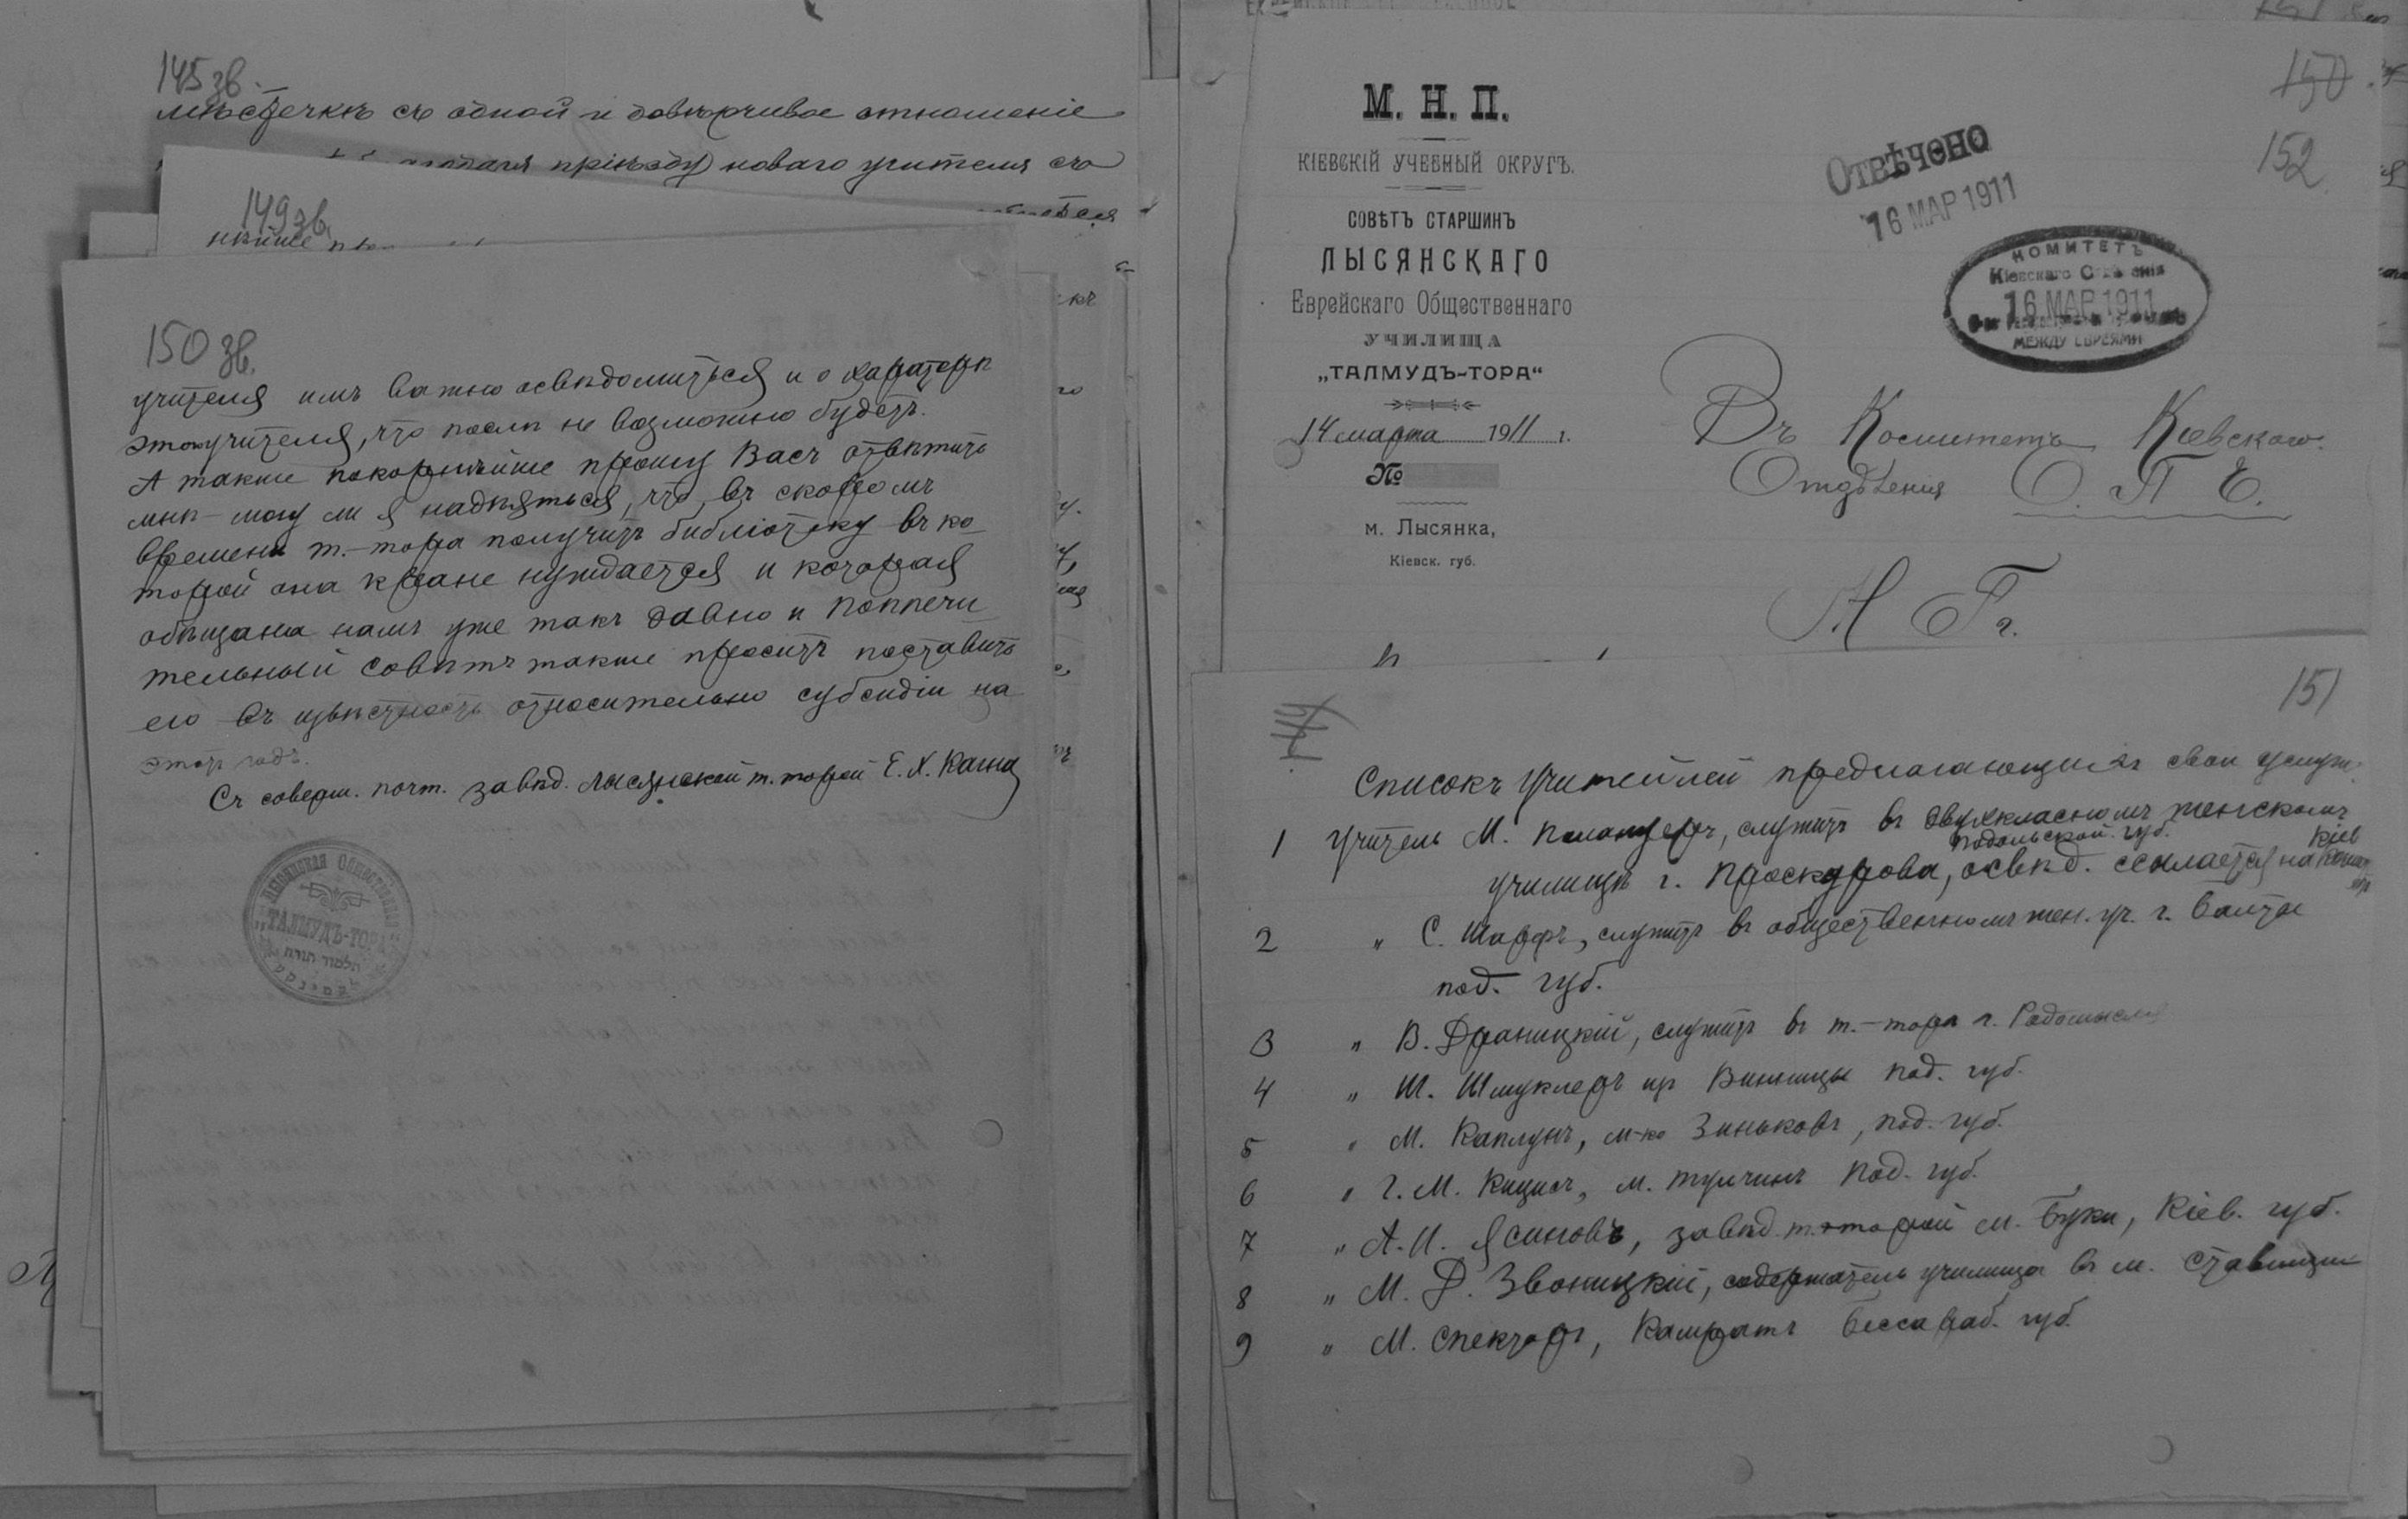 145 зв.
мѣстечкѣ съ одной и довѣрчивое отношеніе
пріѣзду новаго учителя съ
149 зв.
нѣйше
150 зв.
учителя имъ важно освѣдомиться и о характерѣ
этого учителя, что послѣ не возможно будетъ.
А также покорнѣйше прошу Васъ отвѣтить
мнѣ – могу ли я надѣяться, что въ скоромъ
времени т.-тора получитъ библіотеку въ ко
торой она крайне нуждается и которая
обѣщана намъ уже такъ давно и попечи
тельный совѣтъ также проситъ поставить
его въ извѣстность относительно субсидіи на
этотъ годъ.
Съ соверш. почт. завѣд. Лысянской т. торой Е. Х. Каган
Лысянская Общественная
ТАЛМУДЪ-ТОРА
תלמוד תורה
М. Н. П.
КІЕВСКІЙ УЧЕБНЫЙ ОКРУГЪ.
СОВѢТЪ СТАРШИНЪ
ЛЫСЯНСКАГО
Еврейскаго Общественнаго
УЧИЛИЩА
„ТАЛМУДЪ-ТОРА“
14 марта 1911 г.
№
м. Лысянка,
Кіевск. губ.
150
152
Отвѣчено
16 МАР 1911
КОМИТЕТЪ
Кіевскаго Отдѣленія
16 МАР 1911
МЕЖДУ ЕВРЕЯМИ
Въ Комитетъ Кіевскаго
Отдѣленія О. П. Е.
М Гг.
151
Списокъ Учителей предлагающихъ свои услуги.
1 Учитель М. Поланцеръ, служитъ въ двухкласномъ женскомъ
Подольской губ.
Кіев
училищѣ г. Проскурова, освѣд. ссылается на
2 „ С. Шарфъ, служитъ въ общественномъ жен. уч. г. Балты
под. губ.
3 „ В. Драницкій, служитъ въ т.-тора г. Радомысля
4 „ Ш. Шмуклеръ изъ Винницы Под. губ.
5 „ М. Каплунъ, м-ко Зиньковъ, под. губ.
6 „ Г. М. Кицисъ, м. Тульчинъ Под. губ.
7 „ А. И. Ясиновъ, завѣд. т.-торой м. Буки, Кіев. губ.
8 „ М. Д. Звоницкій, содержатель училища въ м. Ставищи
9 „ М. Спекторъ, Комратъ Бессараб. губ.